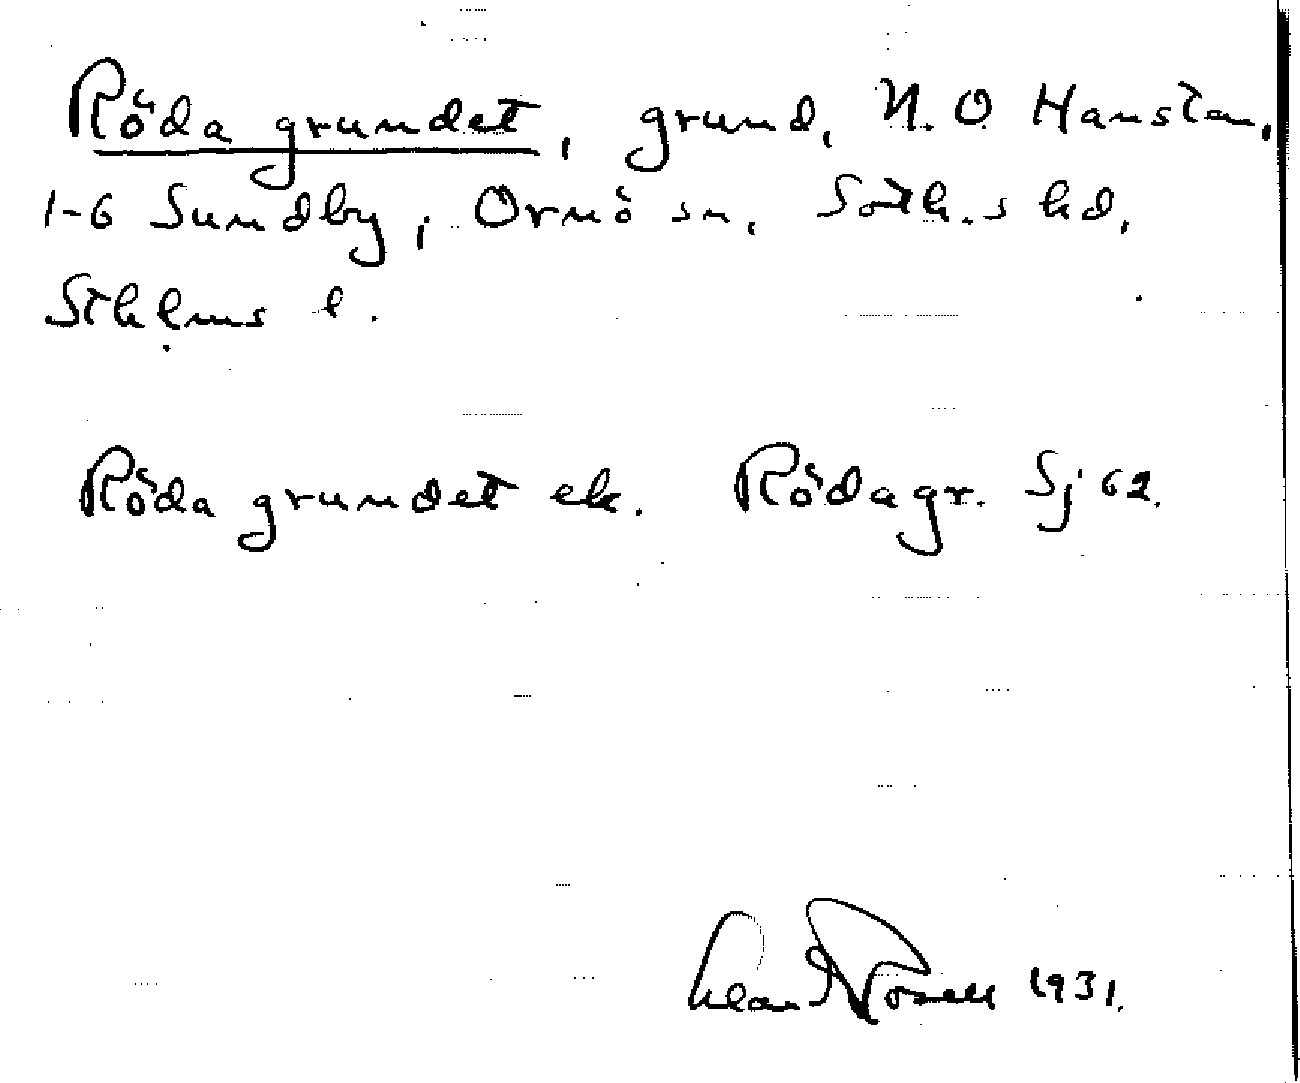 Röda grundet, grund, N.O Hansten,
1-6 Sundby, Ornö sn, Soth.s hd,
Sthlms l.
Röda grundet ek. Rödagr. Sj 62.
1931.